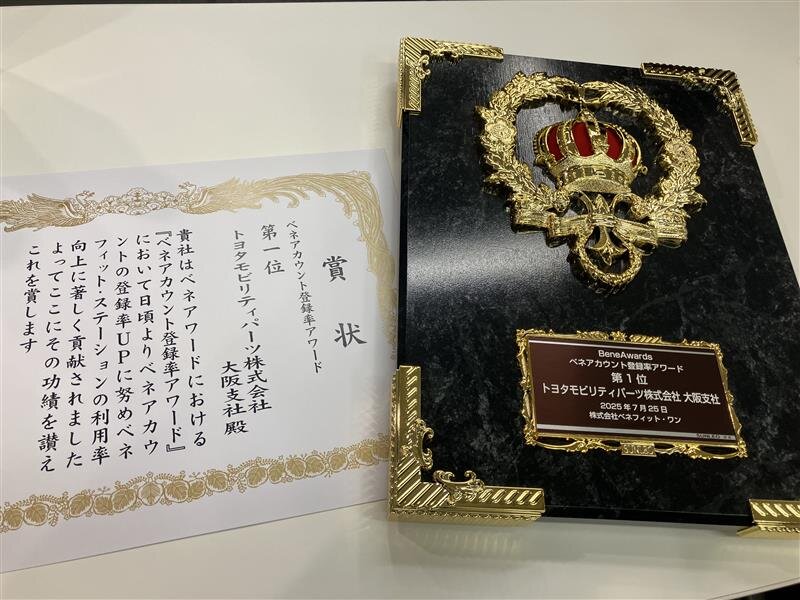 賞状
ベネアカウント登録率アワード
第一位
トヨタモビリティパーツ株式会社
大阪支社 殿
貴社はベネアワードにおける
『ベネアカウント登録率アワード』
において日頃よりベネアカウ
ントの登録率UPに努めベネ
フィット・ステーションの利用率
向上に著しく貢献されました
よってここにその功績を讃え
これを賞します
BeneAwards
ベネアカウント登録率アワード
第1位
トヨタモビリティパーツ株式会社 大阪支社
2025年7月25日
株式会社ベネフィット・ワン